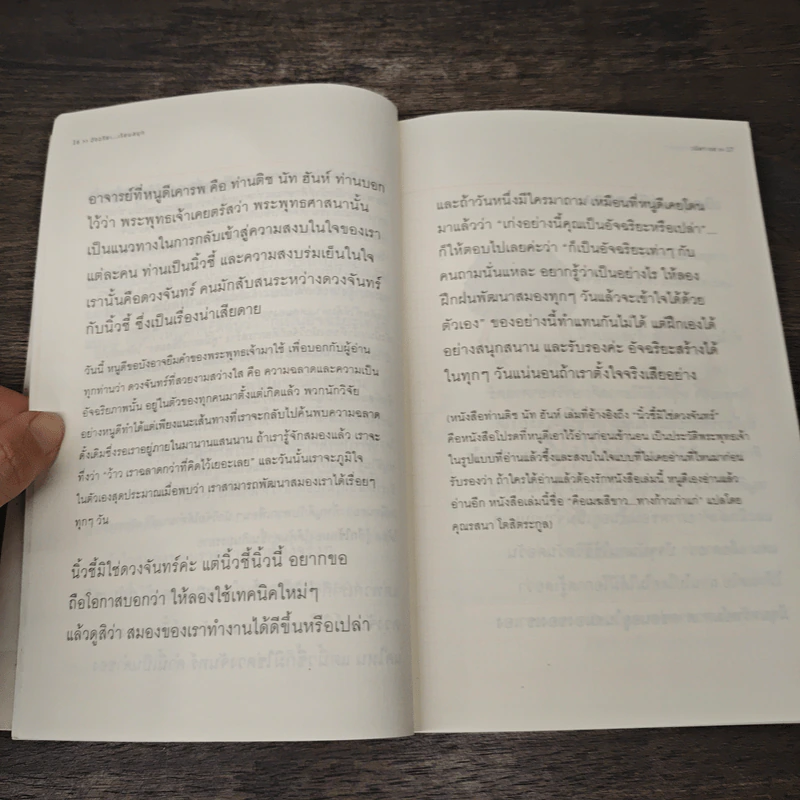 อาจารย์ที่หนูดีเคารพ คือ ท่านติช นัท ฮันห์ ท่านบอก
ไว้ว่า พระพุทธเจ้าเคยตรัสว่า พระพุทธศาสนานั้น
เป็นแนวทางในการกลับเข้าสู่ความสงบในใจของเรา
แต่ละคน ท่านเป็นนิ้วชี้ และความสงบร่มเย็นในใจ
เรานั้นคือดวงจันทร์ คนมักสับสนระหว่างดวงจันทร์
กับนิ้วชี้ ซึ่งเป็นเรื่องน่าเสียดาย
วันนี้ หนูดีขอบังอาจยืมคำของพระพุทธเจ้ามาใช้ เพื่อบอกกับผู้อ่าน
ทุกท่านว่า ดวงจันทร์ที่สวยงามสว่างไสว คือ ความฉลาดและความเป็น
อัจฉริยภาพนั้น อยู่ในตัวของทุกคนมาตั้งแต่เกิดแล้ว พวกนักวิจัย
อย่างหนูดีทำได้แต่เพียงแนะเส้นทางที่เราจะกลับไปค้นพบความฉลาด
ดั้งเดิมซึ่งรอเราอยู่ภายในมานานแสนนาน ถ้าเรารู้จักสมองแล้ว เราจะ
ทึ่งว่า "ว้าว เราฉลาดกว่าที่คิดไว้เยอะเลย" และวันนั้นเราจะภูมิใจ
ในตัวเองสุดประมาณเมื่อพบว่า เราสามารถพัฒนาสมองเราได้เรื่อยๆ
ทุกๆ วัน
นิ้วชี้มิใช่ดวงจันทร์ค่ะ แต่นิ้วชี้นิ้วนี้ อยากขอ
ถือโอกาสบอกว่า ให้ลองใช้เทคนิคใหม่ๆ
แล้วดูสิว่า สมองของเราทำงานได้ดีขึ้นหรือเปล่า
และถ้าวันหนึ่งมีใครมาถาม เหมือนที่หนูดีเคยโดน
มาแล้วว่า "เก่งอย่างนี้คุณเป็นอัจฉริยะหรือเปล่า"...
ก็ให้ตอบไปเลยค่ะว่า "ก็เป็นอัจฉริยะเท่าๆ กับ
คนถามนั่นแหละ อยากรู้ว่าเป็นอย่างไร ให้ลอง
ฝึกฝนพัฒนาสมองทุกๆ วันแล้วจะเข้าใจได้ด้วย
ตัวเอง" ของอย่างนี้ทำแทนกันไม่ได้ แต่ฝึกเองได้
อย่างสนุกสนาน และรับรองค่ะ อัจฉริยะสร้างได้
ในทุกๆ วันแน่นอนถ้าเราตั้งใจจริงเสียอย่าง
(หนังสือท่านติช นัท ฮันห์ เล่มที่อ้างอิงถึง "นิ้วชี้มิใช่ดวงจันทร์"
คือหนังสือโปรดที่หนูดีเอาไว้อ่านก่อนเข้านอน เป็นประวัติพระพุทธเจ้า
ในรูปแบบที่อ่านแล้วซึ้งและสงบในใจแบบที่ไม่เคยอ่านที่ไหนมาก่อน
รับรองว่า ถ้าใครได้อ่านแล้วต้องรักหนังสือเล่มนี้ หนูดีเองอ่านแล้ว
อ่านอีก หนังสือเล่มนี้ชื่อ "คือเมฆสีขาว...ทางก้าวเก่าแก่" แปลโดย
คุณรสนา โตสิตระกูล)